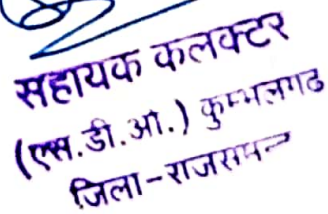 सहायक कलक्टर
(एस.डी.ओ.) कुम्भलगढ
जिला-राजसमन्द